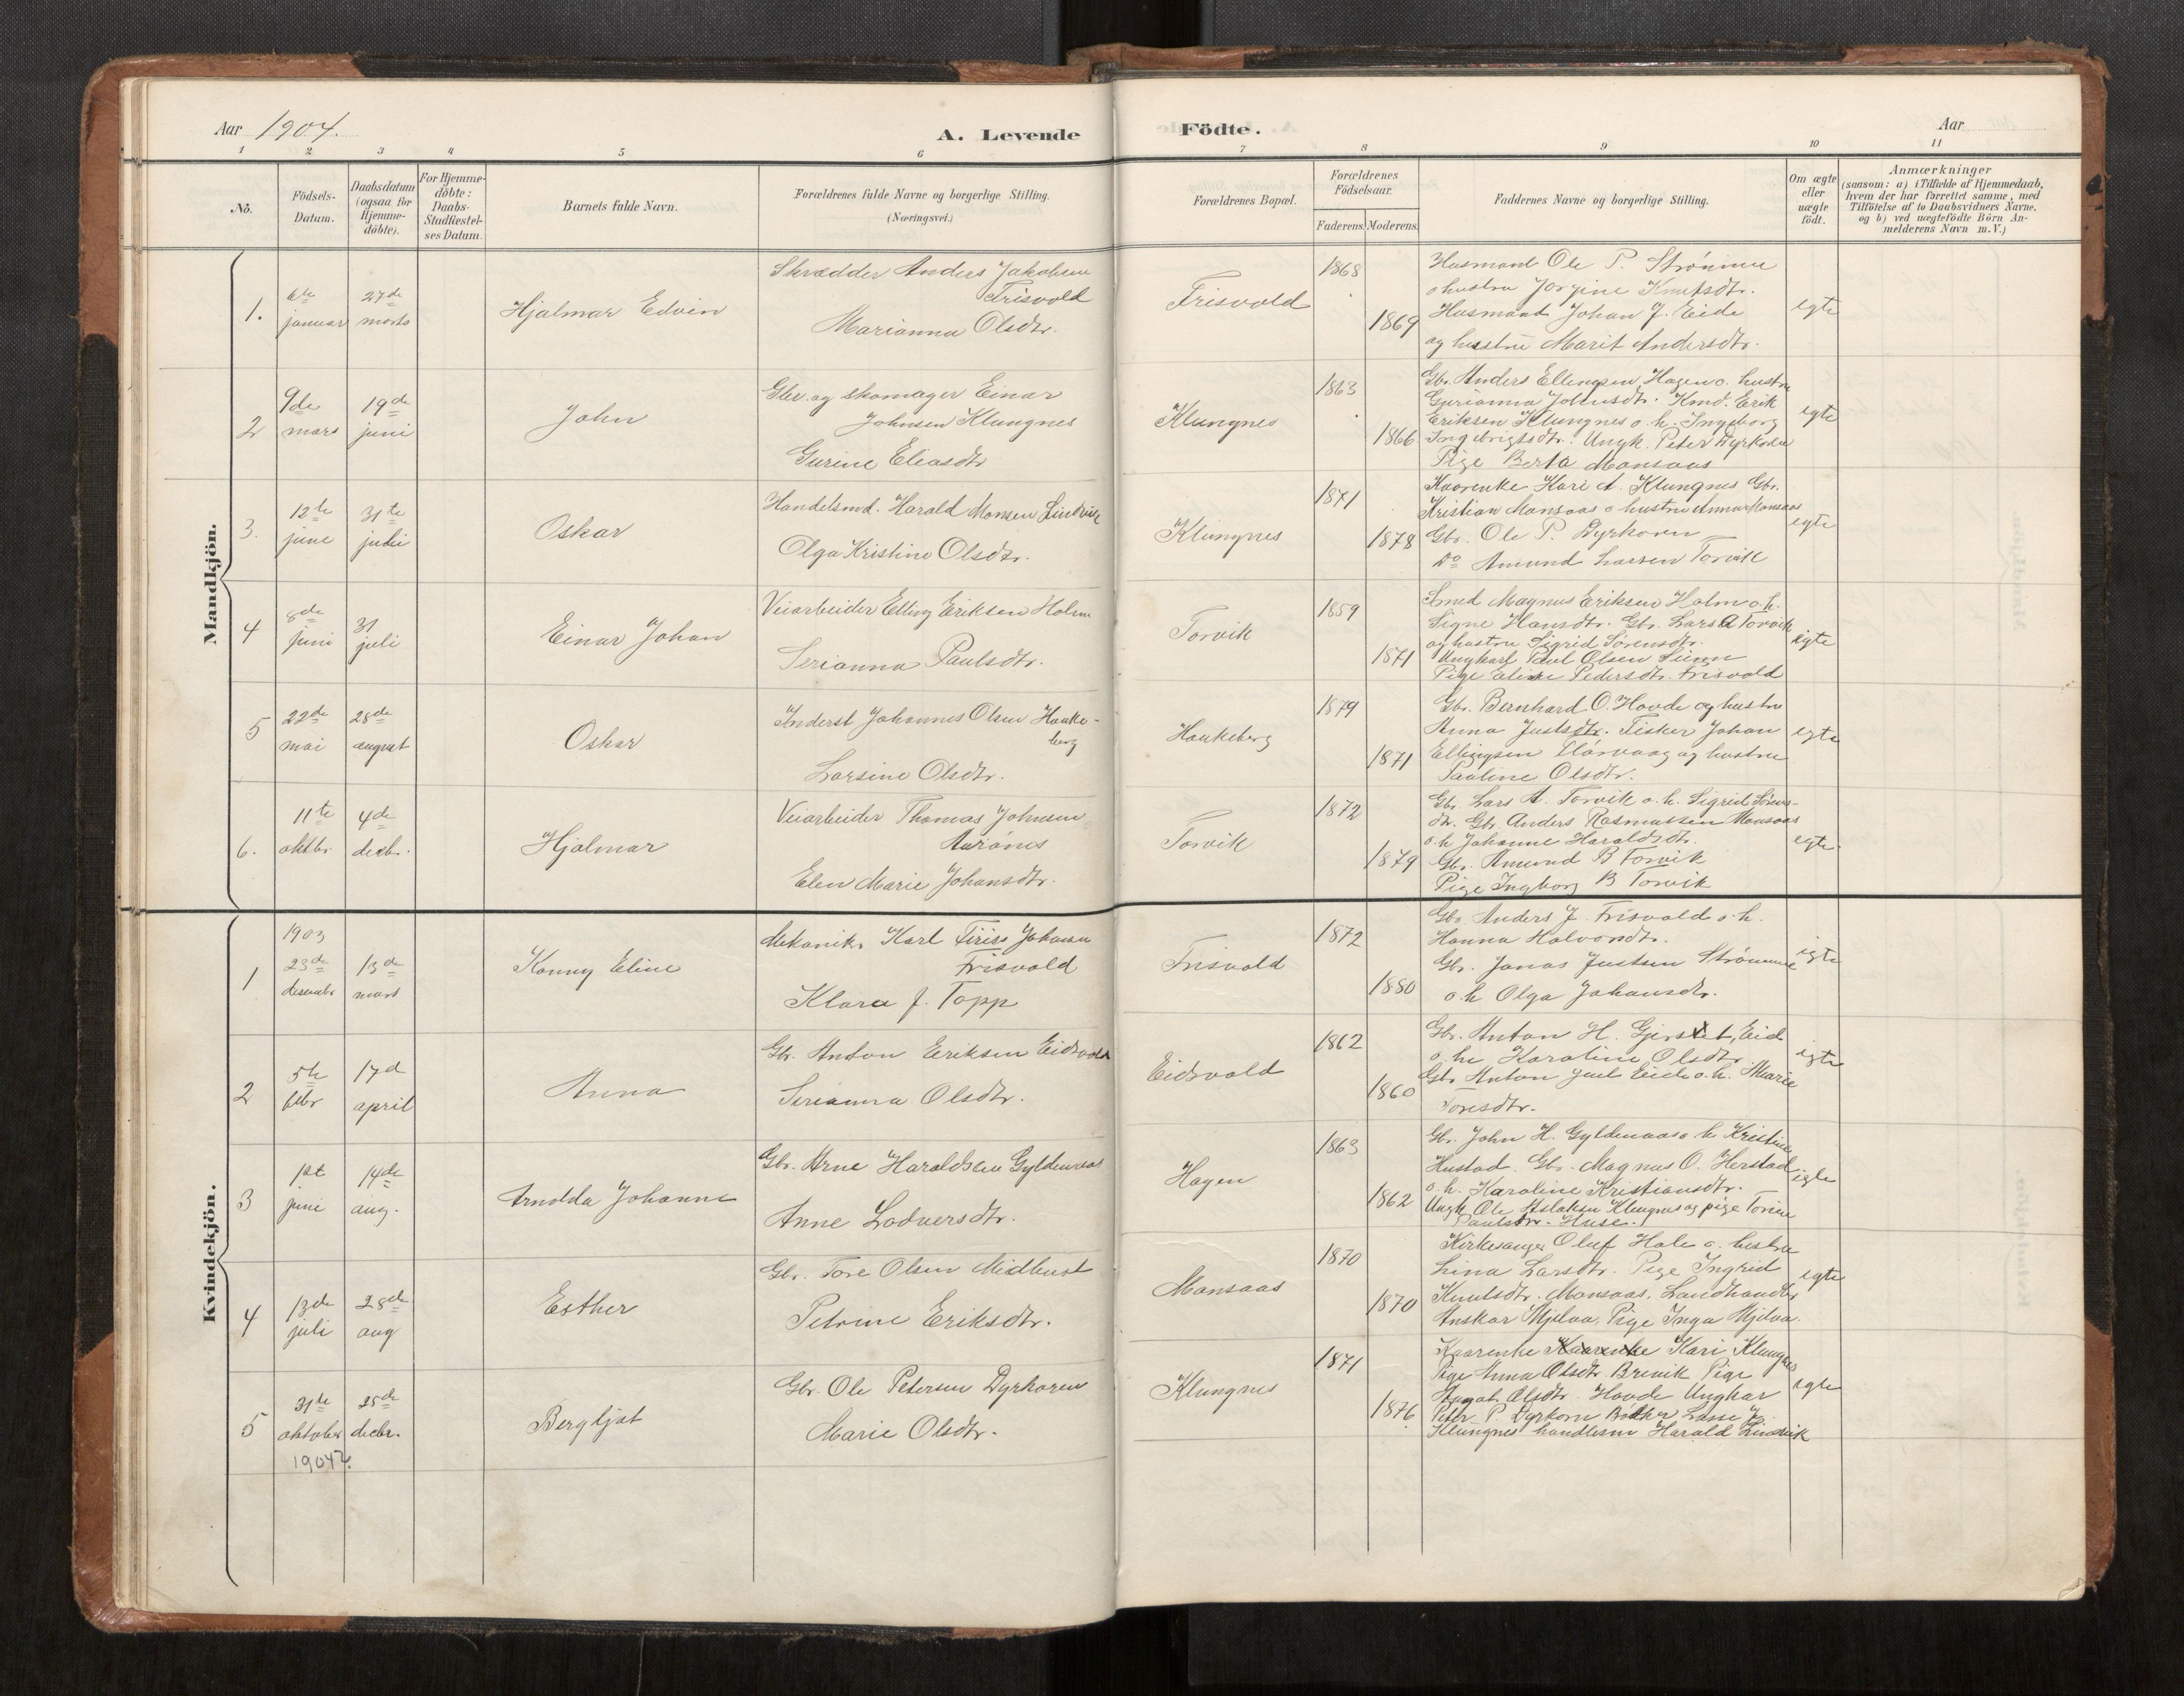 Aar 1904.
A. Levende Födte.
Aar
1 2 3 4 5 6 7 8 9 10 11
No.
Födsels-Datum.
Daabsdatum (ogsaa for Hjemme-döbte).
For Hjemme-döbte: Daabs-Stadfæstel-ses Datum.
Barnets fulde Navn.
Forældrenes fulde Navne og borgerlige Stilling.
(Næringsvei.)
Forældrenes Bopæl.
Forældrenes Födselsaar.
Faderens. Moderens.
Faddernes Navne og borgerlige Stilling.
Om ægte eller uægte födt.
Anmærkninger
(saasom: a) i Tilfælde af Hjemmedaab, hvem der har forrettet samme, med Tilföielse af to Daabsvidners Navne. og b) ved uægtefödte Börn An-melderens Navn m.V.)
Mandkjön.
1.
6te januar
27de marts
Hjalmar Edvin
Skrædder Anders Jakobsen
Frisvold
Marianna Olsdtr.
Frisvold
1868
1869
Husmand Ole P. Strömme
o hustru Jorgine Knutsdtr.
Husmand Johan J. Eide
og hustru Marit Andersdtr.
egte
2
9de mars
19de juni
John
Gbr. og skomager Einar
Johnsen Klungnes
Gurine Eliasdtr
Klungnes
1863
1866
Gbr. Anders Ellingsen Hagen o. hustru
Gurianna Johnsdtr. Kmd. Erik
Eriksen Klungnes o. h. Ingeborg
Ingebrigtsdtr. Ungk. Peter Dyrkoren
Pige Berta Mansaas
egte
3.
12te june
31te juli
Oskar
Handelsmd. Harald Monsen Lindvik
Olga Kristine Olsdtr.
Klungnes
1871
1878
Kaarenke Kari A. Klungnes Gbr.
Kristian Mansaas o hustru Anna Mansaas
Gbr. Ole P. Dyrkoren
Do Amund Larsen Torvik
egte
4
8de juni
31 juli
Einar Johan
Veiarbeider Elling Eriksen Holm
Serianna Paulsdtr.
Torvik
1859
1871
Smed Magnus Eriksen Holm o. h.
Signe Hansdtr. Gbr. Lars A Torvik
og hustru Sigrid Sörensdtr.
Ungkarl Paul Olsen
Pige Eline Pedersdtr. Frisvold
egte
5
22de mai
28de august
Oskar
Inderst Johannes Olsen Hauke-
berg
Larsine Olsdtr.
Haukeberg
1879
1871
Gbr. Bernhard O. Hovde og hustru
Anna Justsdtr. Fisker Johan
Ellingsen Flörvaag og hustru
Pauline Olsdtr.
egte
6.
11te oktbr.
4de decbr.
Hjalmar
Veiarbeider Thomas Johnsen
Aurönes
Elen Marie Johansdtr.
Torvik
1872
1879
Gbr. Lars A. Torvik o. h. Sigrid Sörens-
dtr. Gbr. Anders Rasmussen Mansaas
o. h Johanne Haraldsdtr.
Gbr. Amund B Torvik
Pige Ingborg B Torvik
egte
Kvindekjön.
1
1903
23de desembr
13de mars
Konny Eline
Mekanikr Karl Johansen
Frisvold
Klara J. Topp
Frisvold
1872
1880
Gbr Anders J. Frisvold o. h.
Hanna Halvorsdtr.
Gbr. Jonas Justsen Strömme
o. h Olga Johansdtr.
egte
2
5te febr
17d april
Anna
Gbr. Anton Eriksen Eidsvold
Serianna Olsdtr.
Eidsvold
1862
1860
Gbr. Anton H. Gjerset, Eid
o. h. Karoline Olsdtr.
Gbr Anton Juel Eide o. h. Marie
Toresdtr.
egte
3
1st juni
14de aug.
Arndda Johanne
Gbr. Arne Haraldsen Gyldenaas
Anne Lodversdtr.
Hagen
1863
1862
Gbr. John H. Gyldenaas o. h. Kristine
Hustad. Gbr. Magnus O. Herstad
o. h. Karoline Kristiansdtr.
Ungk Ole Aslaksen Klungnes og pige Torine
Paulsdtr. Huse.
egte
4
13de juli
28de aug
Esther
Gbr. Tore Olsen Midhust
Petrine Eriksdtr.
Mansaas
1870
1870
Kirkesanger Oluf Hole o. hustru
Lina Larsdtr. Pige Ingrid
Knutsdtr. Mansaas, Landhandler
Anskar Mjelva. Pige Inga Mjelva.
egte
5
31te oktober
1904
25de decbr.
Bergljot
Gbr. Ole Petersen Dyrkoren
Marie Olsdtr.
Klungnes
1871
1876
Kaarenke Kaarenke Kari Klungnes
Pige Anna Olsdtr Brevik Pige
Olsdtr. Hovde Ungkar
Peter P. Dyrkorn Lasse J.
Klungnes handlesm Harald Lindvik
egte